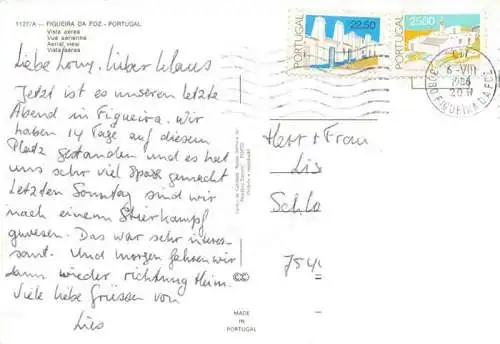 1127/A – FIGUEIRA DA FOZ - PORTUGAL
Vista aérea
Vue aérienne
Aerial view
Vista aérea
Liebe Lony, lieber Klaus
Jetzt ist es unseren letzte
Abend in Figueira. Wir
haben 14 Tage auf diesem
Platz gestanden und es hat
uns sehr viel Spass gemacht
Letzten Sonntag sind wir
nach einem Stierkampf
gewesen. Das war sehr interes-
sant. Und morgen fahren wir
dann wieder richtung Heim.
Viele liebe Grüssen von
Lies
PORTUGAL 22.50
PORTUGAL 25.00
CTT
6-VIII
1986
20 H
FIGUEIRA DA FOZ
Herr + Frau
Lis
Schlo
754
MADE
IN
PORTUGAL